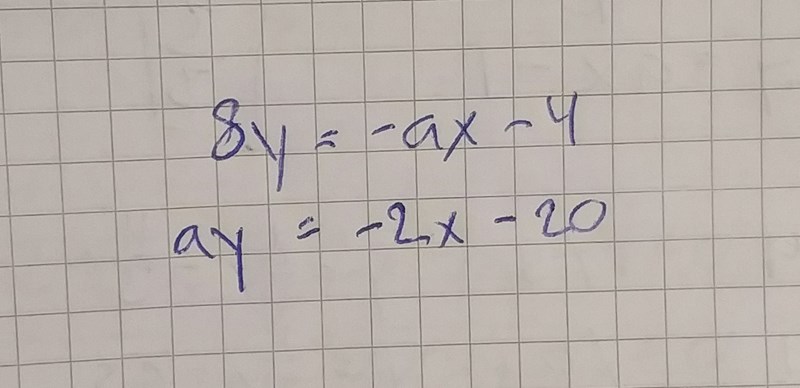 8y = -ax - 4
ay = -2x - 20